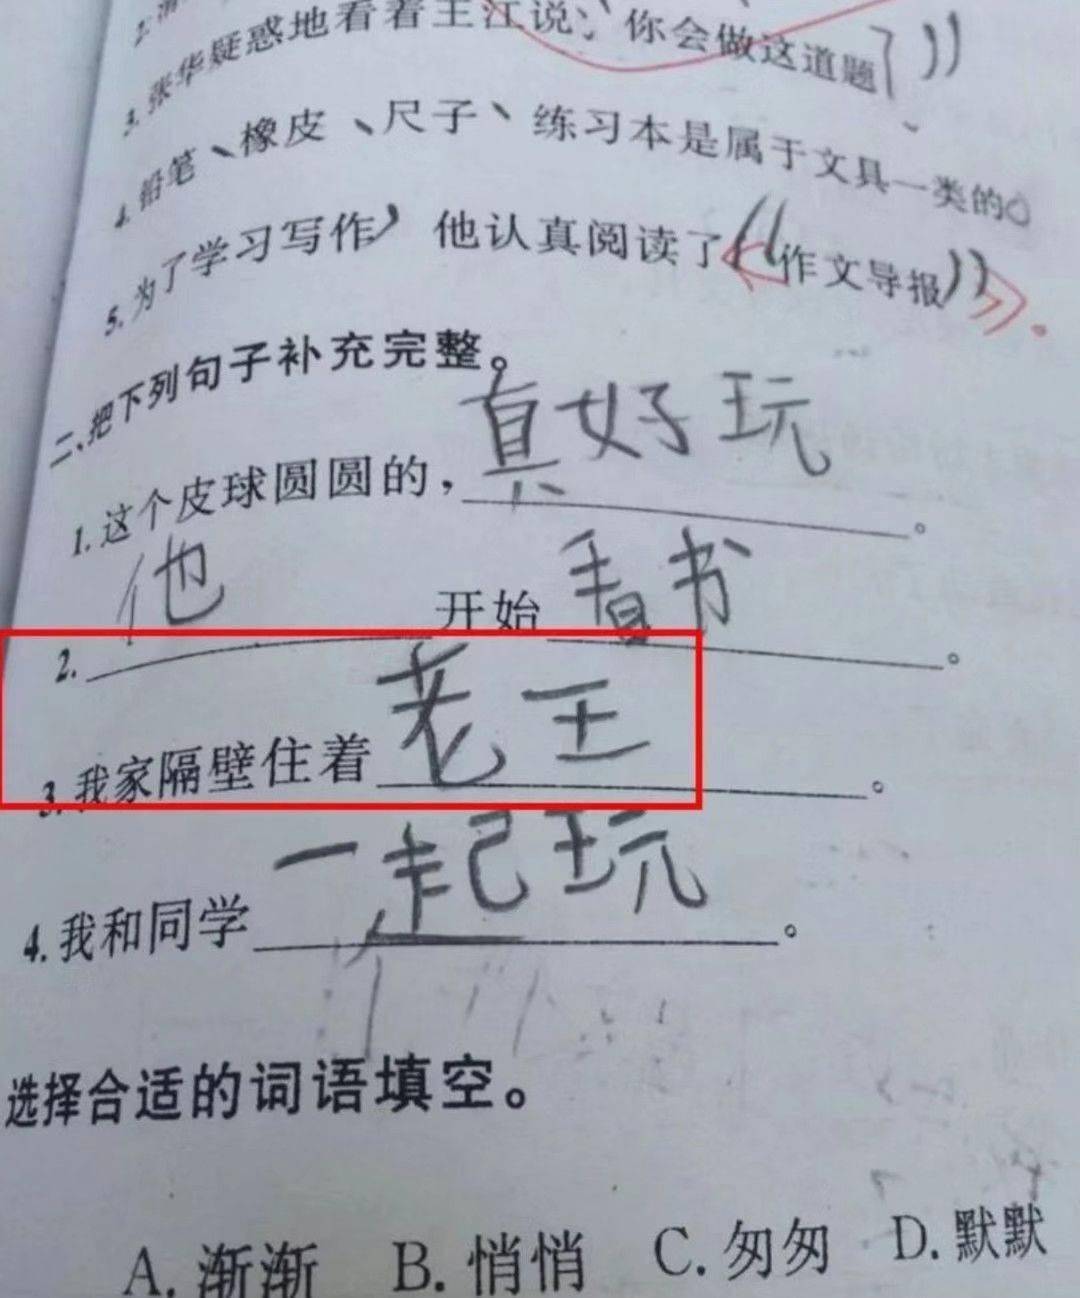 3.张华疑惑地看着王江说:“你会做这道题?”
4.铅笔、橡皮、尺子、练习本是属于文具一类的。
5.为了学习写作,他认真阅读了《作文导报》。
二、把下列句子补充完整。
1.这个皮球圆圆的,真好玩。
2.他开始看书。
3.我家隔壁住着老王。
4.我和同学一起玩。
选择合适的词语填空。
A.渐渐 B.悄悄 C.匆匆 D.默默